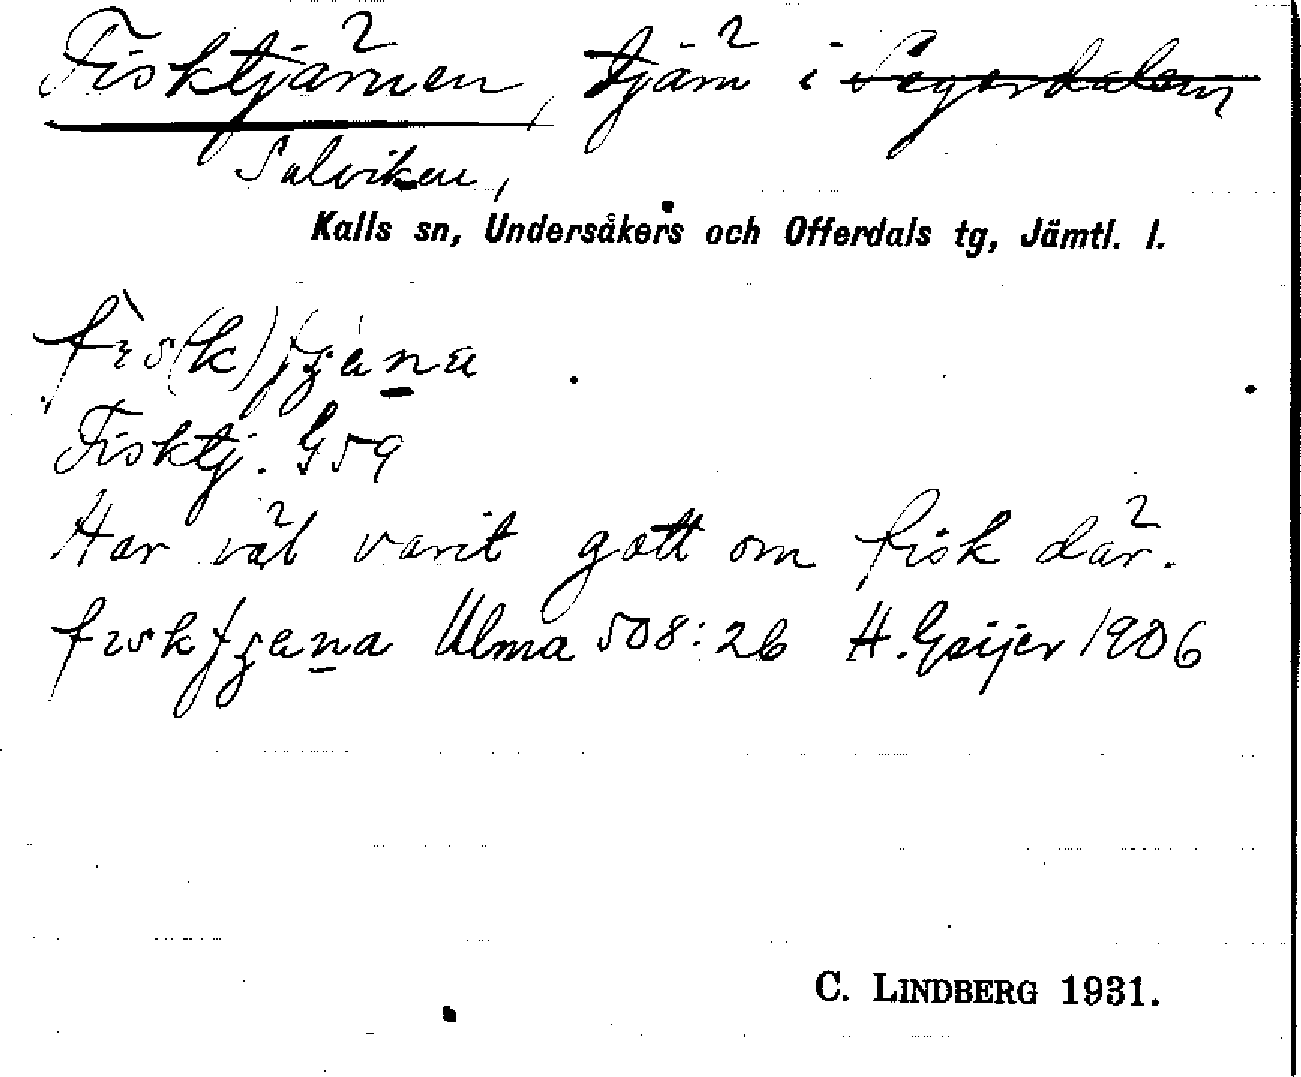 Fisktjärnen, tjärn i
Sulviken,
Kalls sn, Undersåkers och Offerdals tg, Jämtl. l.
Fisktj. G59
Har väl varit gott om fisk där.
Ulma 508:26 H. Geijer 1906
C. LINDBERG 1931.